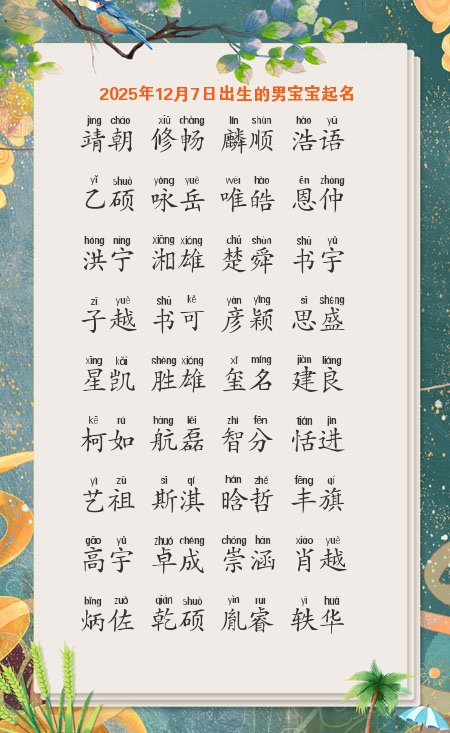 2025年12月7日出生的男宝宝起名
jìng cháo xiū chàng lín shùn hào yǔ
靖朝 修畅 麟顺 浩语
yǐ shuò yǒng yuè wéi hào ēn zhòng
乙硕 咏岳 唯皓 恩仲
hóng níng xiāng xióng chǔ shùn shū yǔ
洪宁 湘雄 楚舜 书宇
zǐ yuè shū kě yàn yǐng sī shèng
子越 书可 彦颖 思盛
xīng kǎi shèng xióng xǐ míng jiàn liáng
星凯 胜雄 玺名 建良
kē rú háng lěi zhì fēn tián jìn
柯如 航磊 智分 恬进
yì zǔ sī qí hán zhé fēng qí
艺祖 斯淇 晗哲 丰旗
gāo yǔ zhuó chéng chóng hán xiāo yuè
高宇 卓成 崇涵 肖越
bǐng zuǒ qián shuò yìn ruì yì huá
炳佐 乾硕 胤睿 轶华